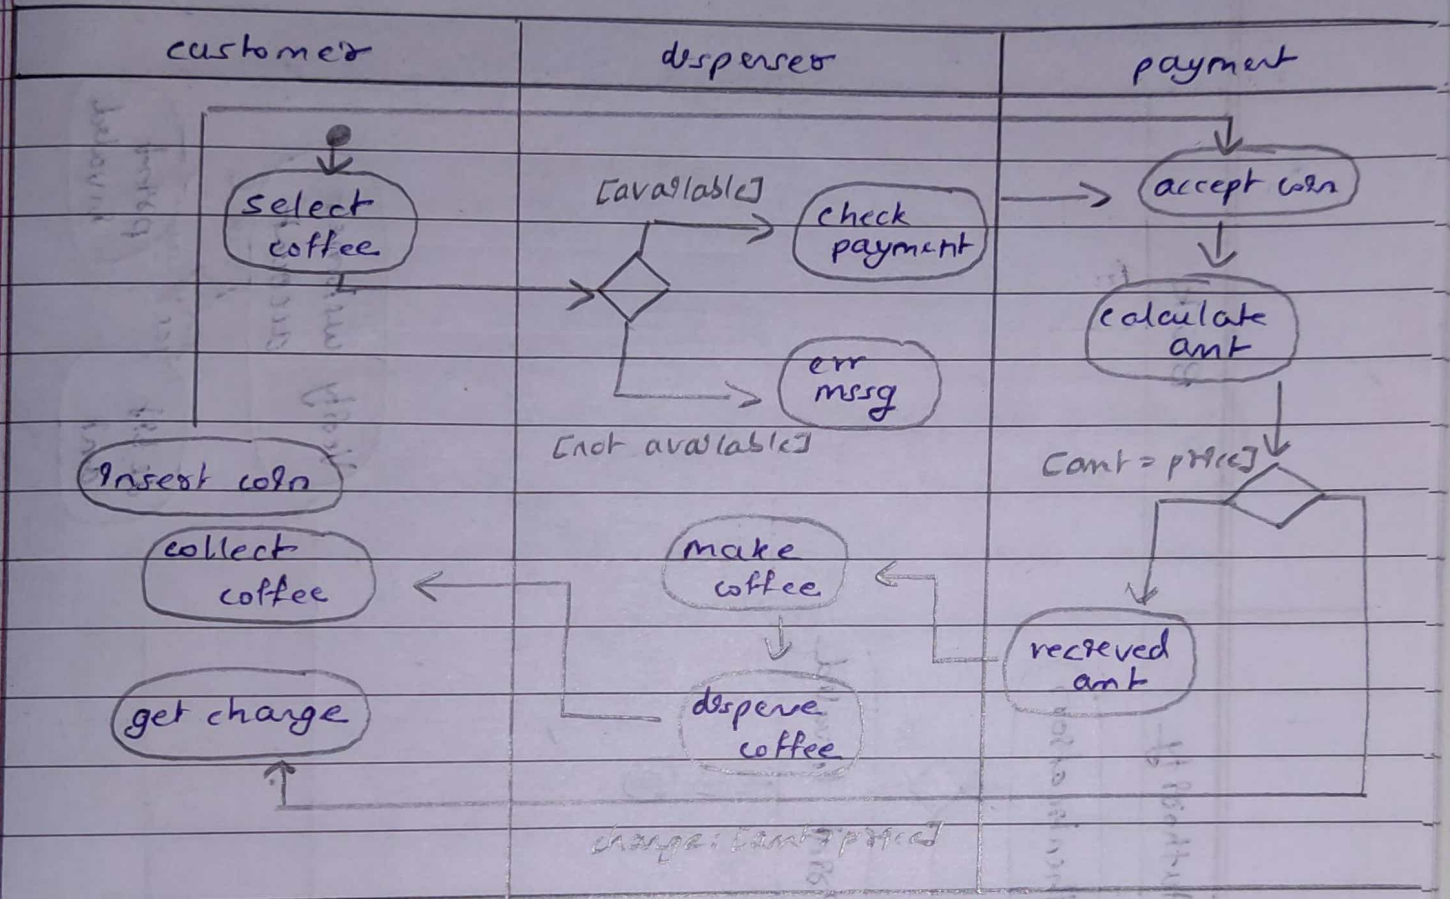 customer
dispenser
payment
select
coffee
[available]
check
payment
accept coin
calculate
amt
err
mssg
[not available]
[amt = price]
insert coin
collect
coffee
make
coffee
recieved
amt
get change
dispense
coffee
change: [amt > price]